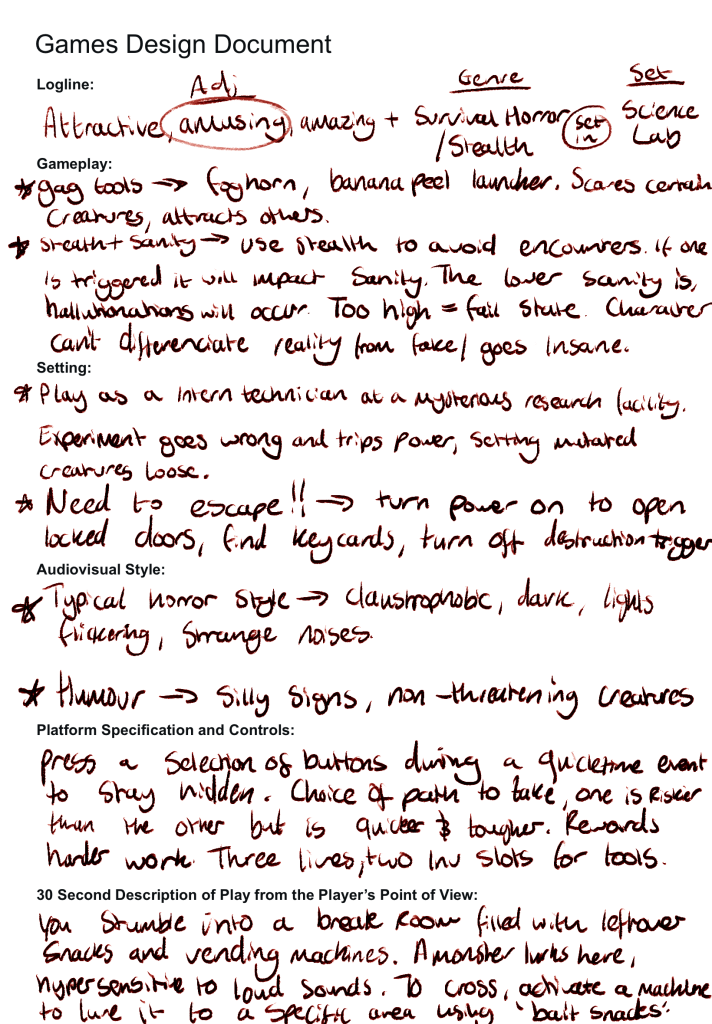 Games Design Document
Logline:
Adj
Genre
Set
Attractive, amusing, amazing + Survival Horror
/Stealth
set
in
Science
Lab
Gameplay:
* gag tools → foghorn, banana peel launcher. Scares certain
creatures, attracts others.
* Stealth + Sanity → use stealth to avoid encounters. If one
is triggered it will impact Sanity. The lower sanity is,
hallutionations will occur. Too high = fail state. Character
can't differenciate reality from fake/ goes insane.
Setting:
* Play as a intern technician at a mysterious research facility.
Experiment goes wrong and trips power, setting mutated
creatures loose.
* Need to escape!! → turn power on to open
locked doors, find keycards, turn off destruction trigger
Audiovisual Style:
* Typical horror style → claustrophobic, dark, lights
flickering, strange noises.
* Humour → silly signs, non-threatening creatures
Platform Specification and Controls:
Press a selection of buttons during a quicktime event
to stay hidden. Choice of path to take, one is riskier
than the other but is quicker & tougher. Rewards
harder work. Three lives, two inv slots for tools.
30 Second Description of Play from the Player's Point of View:
You stumble into a break room filled with leftover
snacks and vending machines. A monster lurks here,
hypersensitive to loud sounds. To cross, activate a machine
to lure it to a specific area using 'bait snacks'.